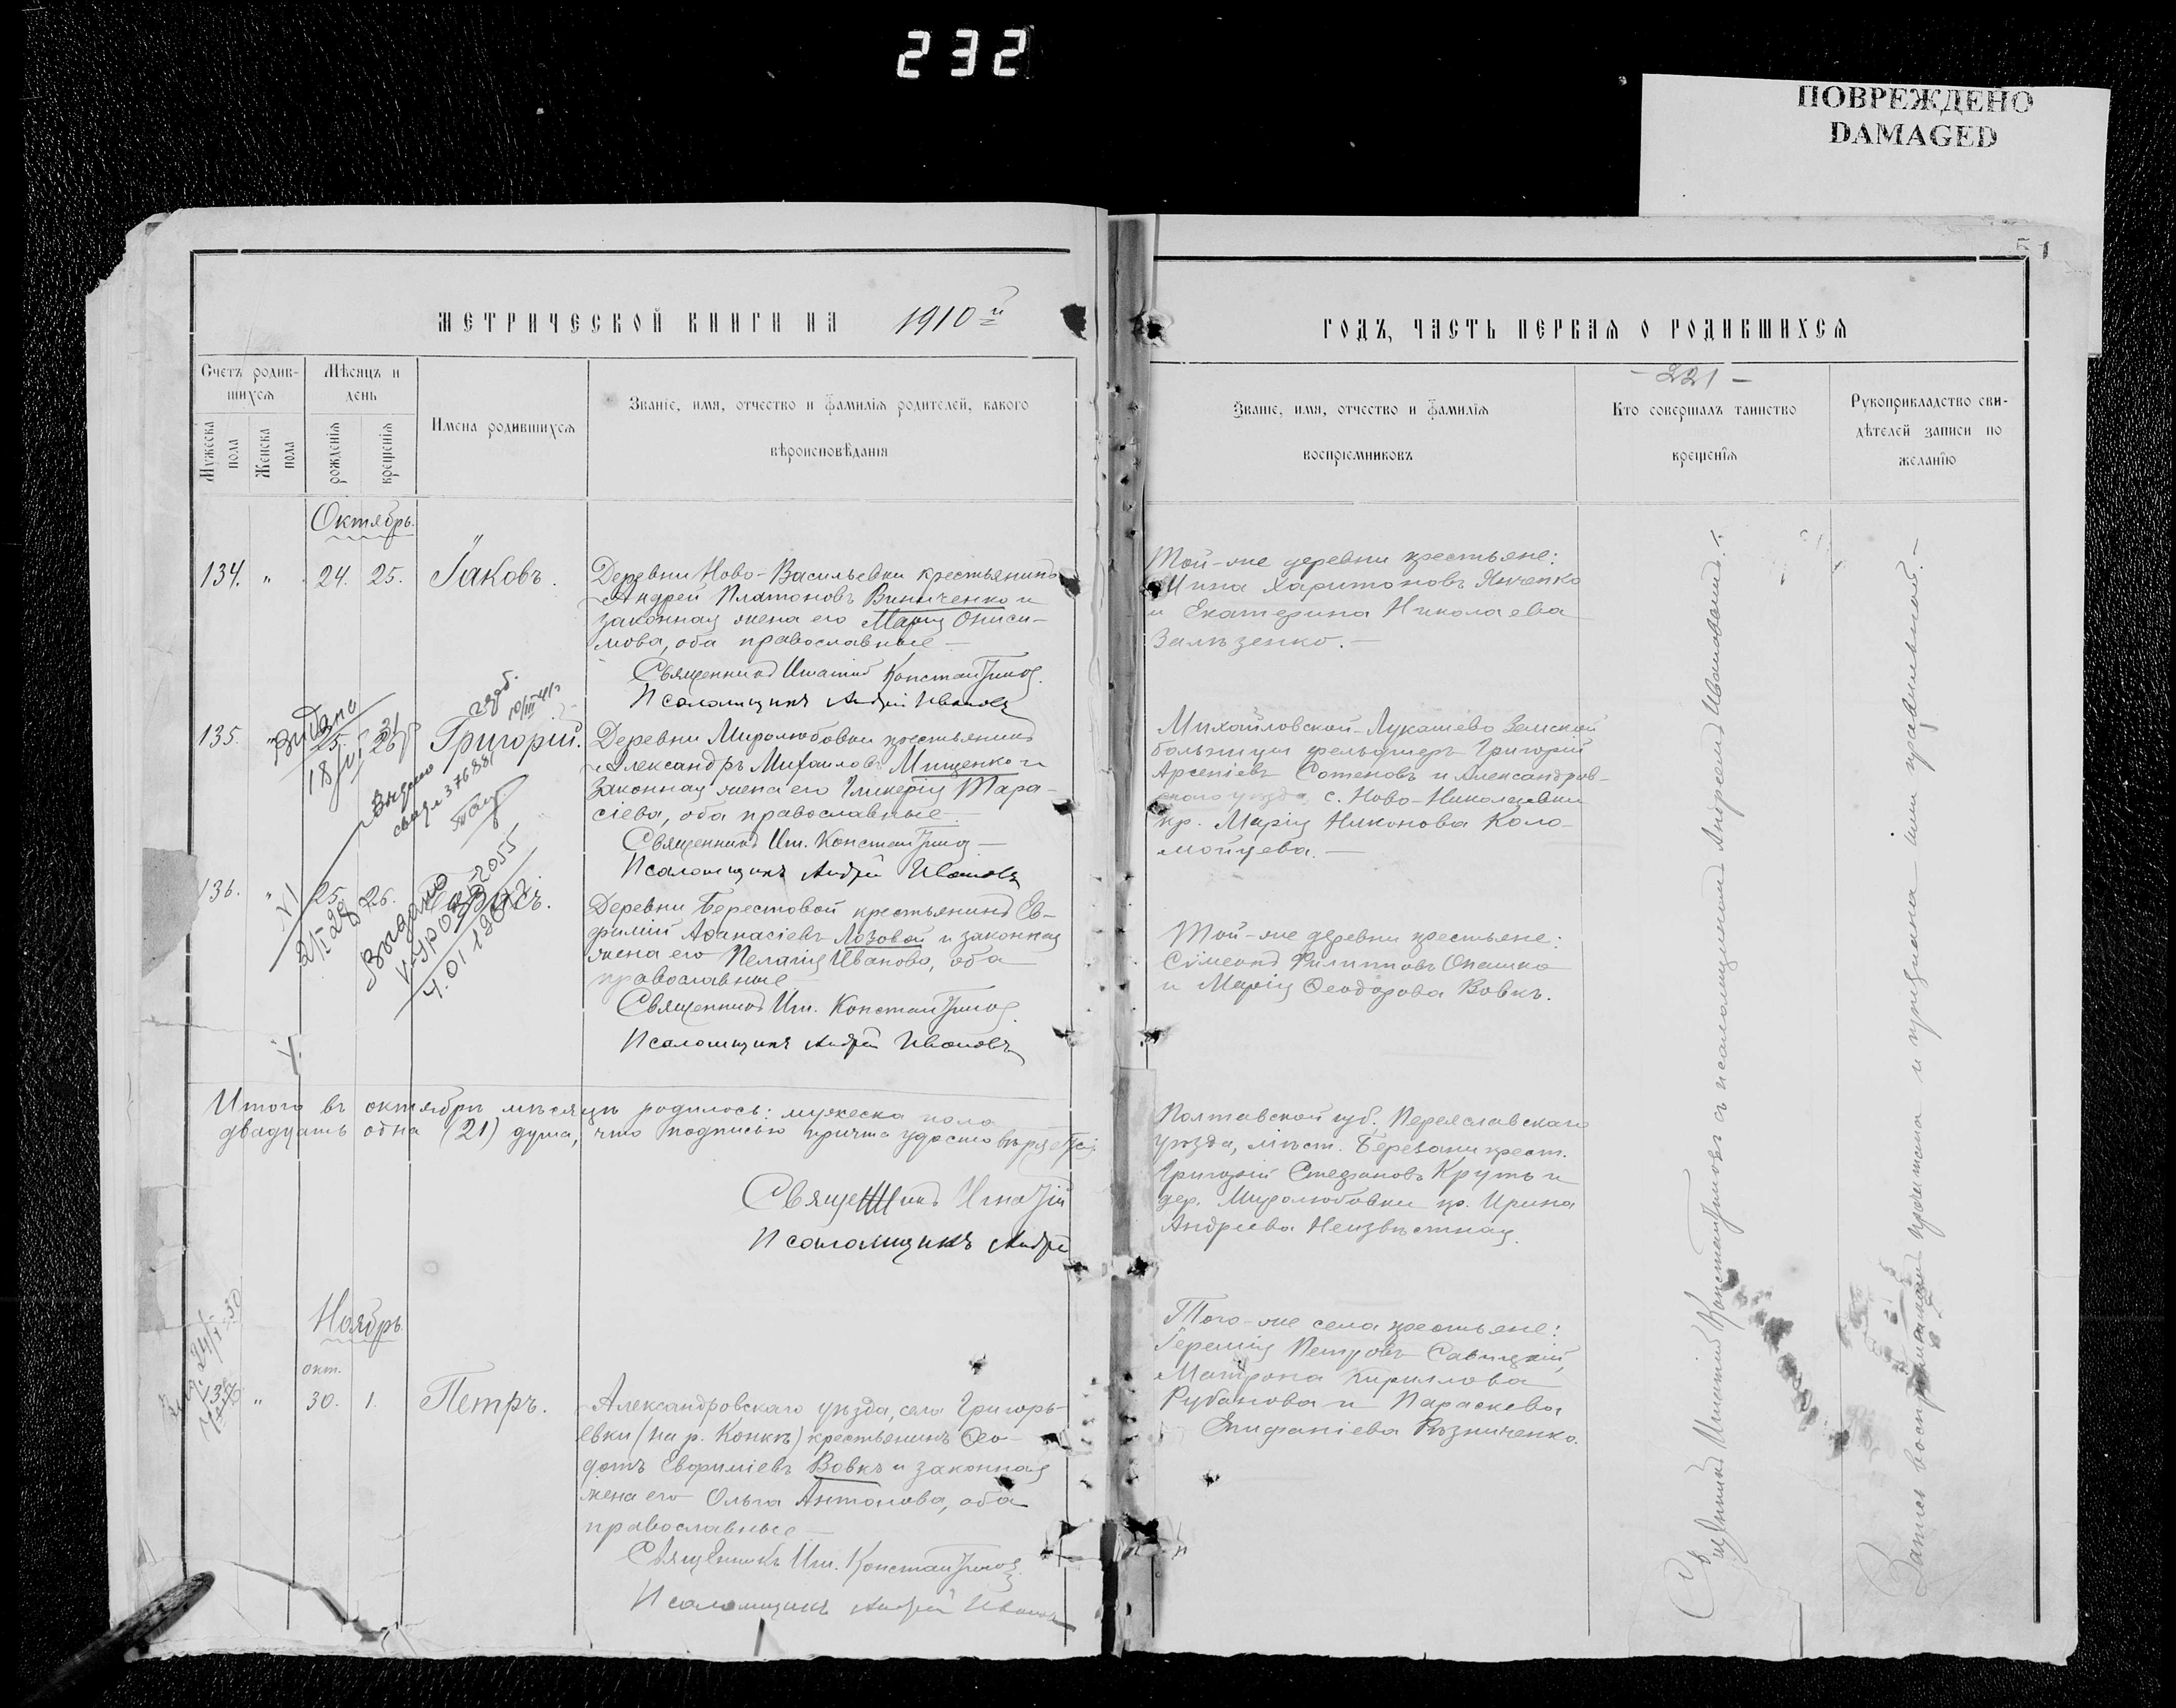 232
ПОВРЕЖДЕНО
DAMAGED
51
МЕТРИЧЕСКОЙ КНИГИ НА 1910й
Счетъ родив-
шихся
Мѣсяцъ и
день
Мужеска
пола
Женска
пола
рожденія
крещенія
Имена родившихся
Званіе, имя, отчество и фамилія родителей, какого
вѣроисповѣданія
Октябрь.
134. " 24. 25. Іаковъ.
Деревни Ново-Васильевки крестьянинъ
Андрей Платоновъ Винниченко и
законная жена его Марія Ониси-
мова, оба православные
Священникъ Игнатій Константиновъ.
Псаломщикъ Андрей Ивановъ
135. " 25. 26. Григорій.
Видано
18/VI 31
Выдано
10/III 41г
Деревни Миролюбовки крестьянинъ
Александръ Михаиловъ Мищенко и
законная жена его Гликерія Тара-
сіева, оба православные.
Священникъ Игн. Константиновъ
Псаломщикъ Андрей Ивановъ
136. " 25. 26.
Выдано
4.01.1967г.
Деревни Берестовой крестьянинъ Ев-
фимій Аѳанасіевъ Лозовой и законная
жена его Пелагія Иванова, оба
православные
Священникъ Игн. Константиновъ.
Псаломщикъ Андрей Ивановъ
Итого въ октябрѣ мѣсяцѣ родилось: мужеска пола
двадцать одна (21) душа, что подписью причта удостовѣряется.
Священникъ Игнатій
Псаломщикъ Андрей
Ноябрь.
окт.
" 30. 1. Петръ.
Александровскаго уѣзда, села Григорь-
евки (на р. Конкѣ) крестьянинъ Ѳео-
дотъ Евфиміевъ Вовкъ и законная
жена его Ольга Антонова, оба
православные
Священникъ Игн. Константиновъ.
Псаломщикъ Андрей Ивановъ
ГОДЪ, ЧАСТЬ ПЕРВАЯ О РОДИВШИХСЯ
Званіе, имя, отчество и фамилія
воспріемниковъ
- 221 -
Кто совершалъ таинство
крещенія
Рукоприкладство сви-
дѣтелей записи по
желанію
Той-же деревни крестьяне:
Мина Харитоновъ Янченко
и Екатерина Николаева
Залѣзенко.
Михайловской-Лукашево Земской
больницы фельдшеръ Григорій
Арсеніевъ Сотеновъ и Александров-
скаго уѣзда, с. Ново-Николаевки
кр. Марія Никонова Коло-
мойцева.
Той-же деревни крестьяне:
Сѵмеонъ Филипповъ Опашко
и Марія Ѳеодорова Вовкъ.
Полтавской губ. Переяславскаго
уѣзда, мѣст. Березани крест.
Григорій Стефановъ Круть и
дер. Миролюбовки кр. Ирина
Андреева Неизвѣстная.
Того-же села крестьяне:
Іеремія Петровъ Савицкій,
Матрона Кириллова
Рубанова и Параскева
Епифаніева Рѣзниченко.
Священникъ Игнатій Константиновъ съ псаломщикомъ Андреемъ Ивановымъ.
Запись воспріемниками прочитана и признана ими правильной.